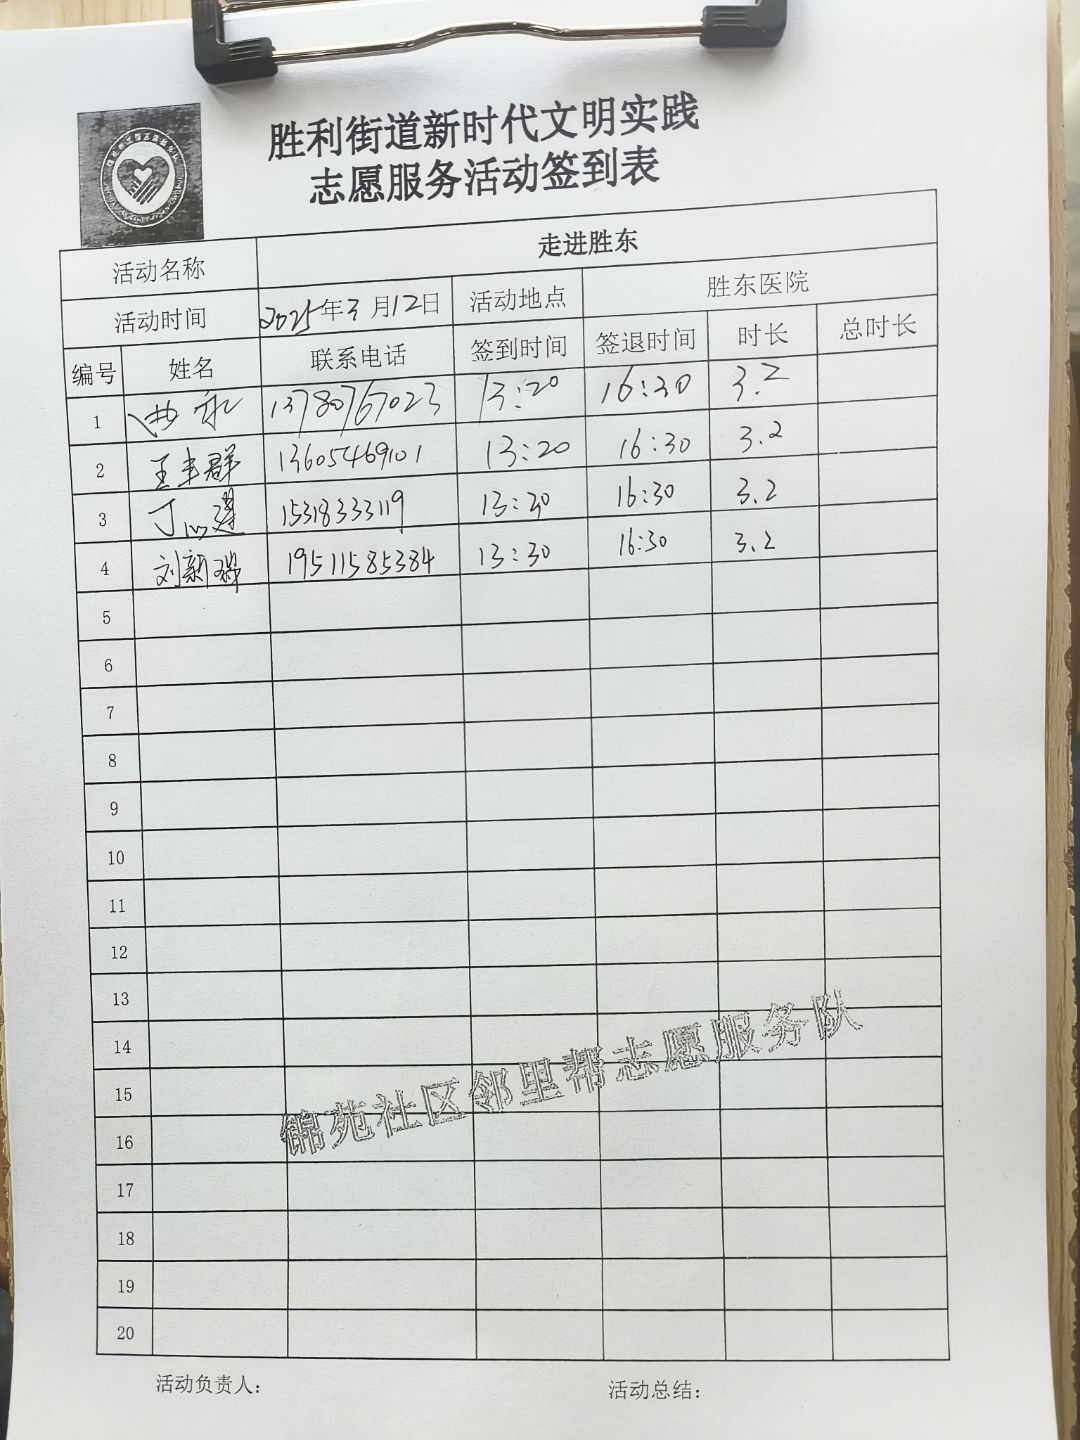 胜利街道新时代文明实践
志愿服务活动签到表
活动名称 走进胜东
活动时间 2025年3月12日 活动地点 胜东医院
编号 姓名 联系电话 签到时间 签退时间 时长 总时长
1 13780767023 13:20 16:30 3.2
2 王丰群 13605469101 13:20 16:30 3.2
3 丁 15318333119 13:20 16:30 3.2
4 刘新瑞 19511585384 13:30 16:30 3.2
5
6
7
8
9
10
11
12
13
14
15
16
17
18
19
20
锦苑社区邻里帮志愿服务队
活动负责人: 活动总结: